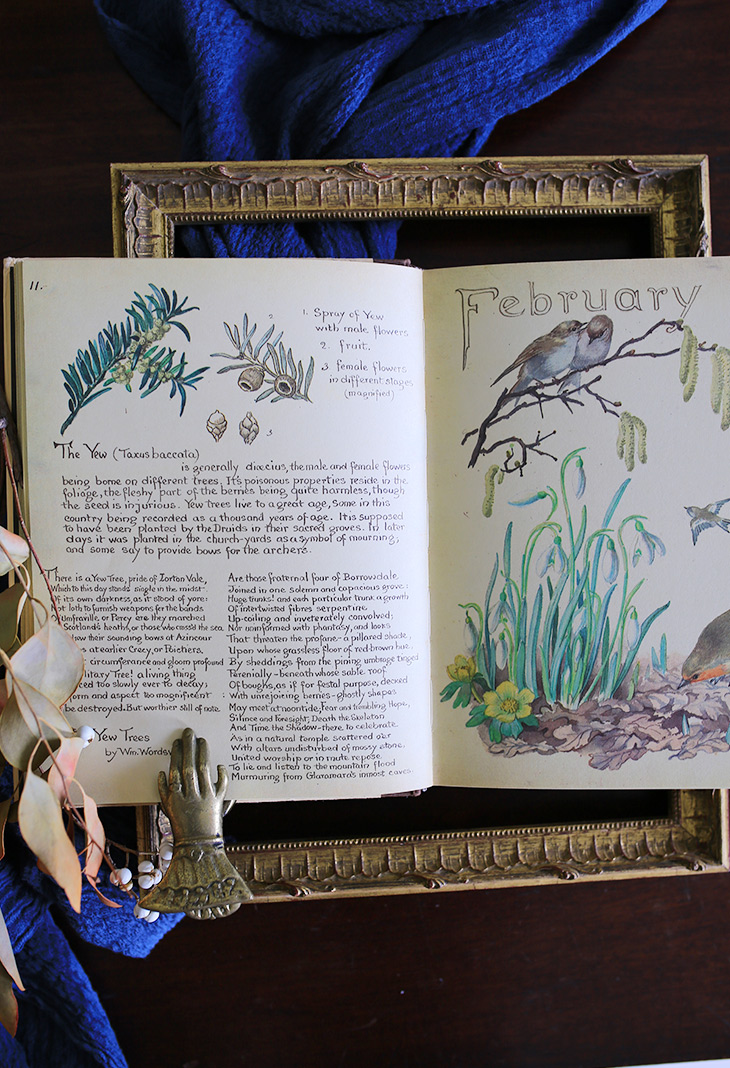 11.
2
1. Spray of Yew
with male flowers
2. fruit.
3. female flowers
in different stages
(magnified)
1
3
The Yew (Taxus baccata)
is generally diœcius, the male and female flowers
being borne on different trees. Its poisonous properties reside in the
foliage, the fleshy part of the berries being quite harmless, though
the seed is injurious. Yew Trees live to a great age, Some in this
country being recorded as a thousand years of age. It is supposed
to have been planted by the Druids in their sacred groves. In later
days it was planted in the church-yards as a symbol of mourning,
and some say to provide bows for the archers.
There is a Yew Tree, pride of Lorton Vale,
Which to this day stands single in the midst
Of its own darkness, as it stood of yore:
Not loth to furnish weapons for the bands
Of Umfraville, or Percy ere they marched
Scotland's heaths, or those who cross'd the sea
their sounding bows at Azincour
at earlier Crecy, or Poictiers.
circumference and gloom profound
Solitary Tree! a living thing
too slowly ever to decay;
form and aspect too magnificent
be destroyed. But worthier still of note
Yew Trees
by Wm. Wordsw
Are those fraternal four of Borrowdale
Joined in one solemn and capacious grove:
Huge trunks! and each particular trunk a growth
Of intertwisted fibres serpentine
Up-coiling and inveterately convolved;
Nor uninformed with phantasy, and looks
That threaten the profane- a pillared shade,
Upon whose grassless floor of red-brown hue,
By sheddings from the pining umbrage tinged
Perenially - beneath whose sable roof
Of boughs, as if for festal purpose, decked
With unrejoicing berries - ghostly shapes
May meet at noontide; Fear and trembling Hope,
Silence and foresight; Death the Skeleton
And Time the Shadow - there to celebrate,
As in a natural temple scattered o'er
With altars undisturbed of mossy stone,
United worship or in mute repose
To lie and listen to the mountain flood
Murmuring from Glaramara's inmost caves.
February